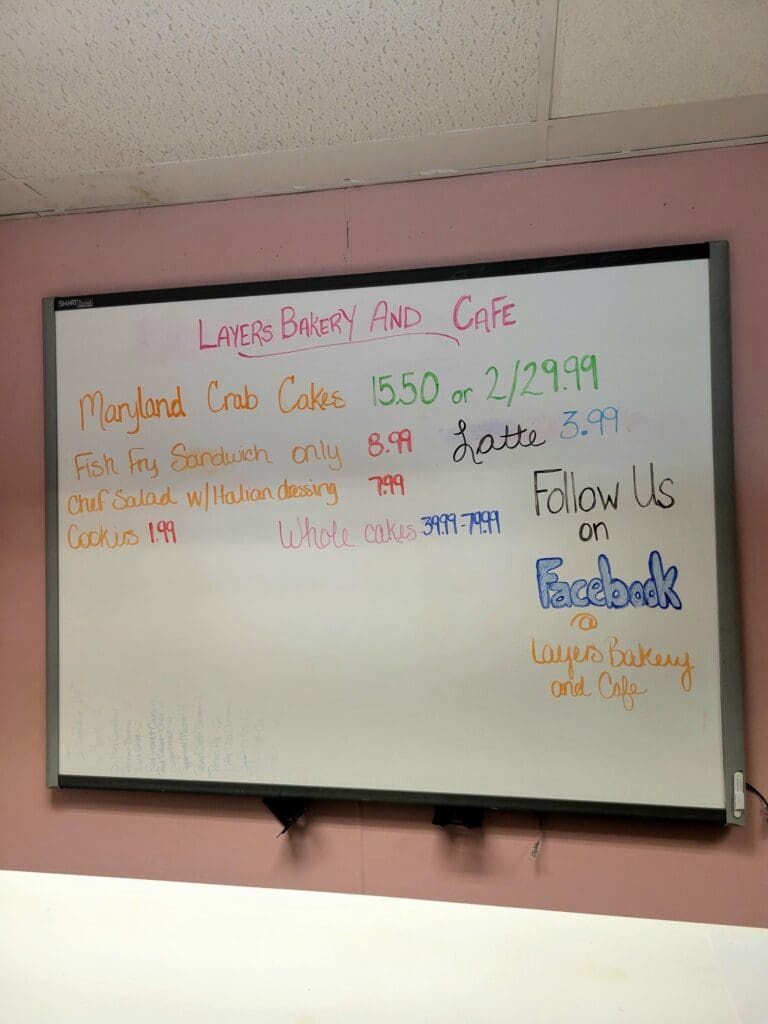 SMART Board
LAYERS BAKERY AND CAFE
Maryland Crab Cakes 15.50 or 2/29.99
Fish Fry Sandwich only 8.99
Latte 3.99
Chef Salad w/Italian dressing 7.99
Cookies 1.99
Whole cakes 39.99-79.99
Follow Us
on
Facebook
@
Layers Bakery
and Cafe